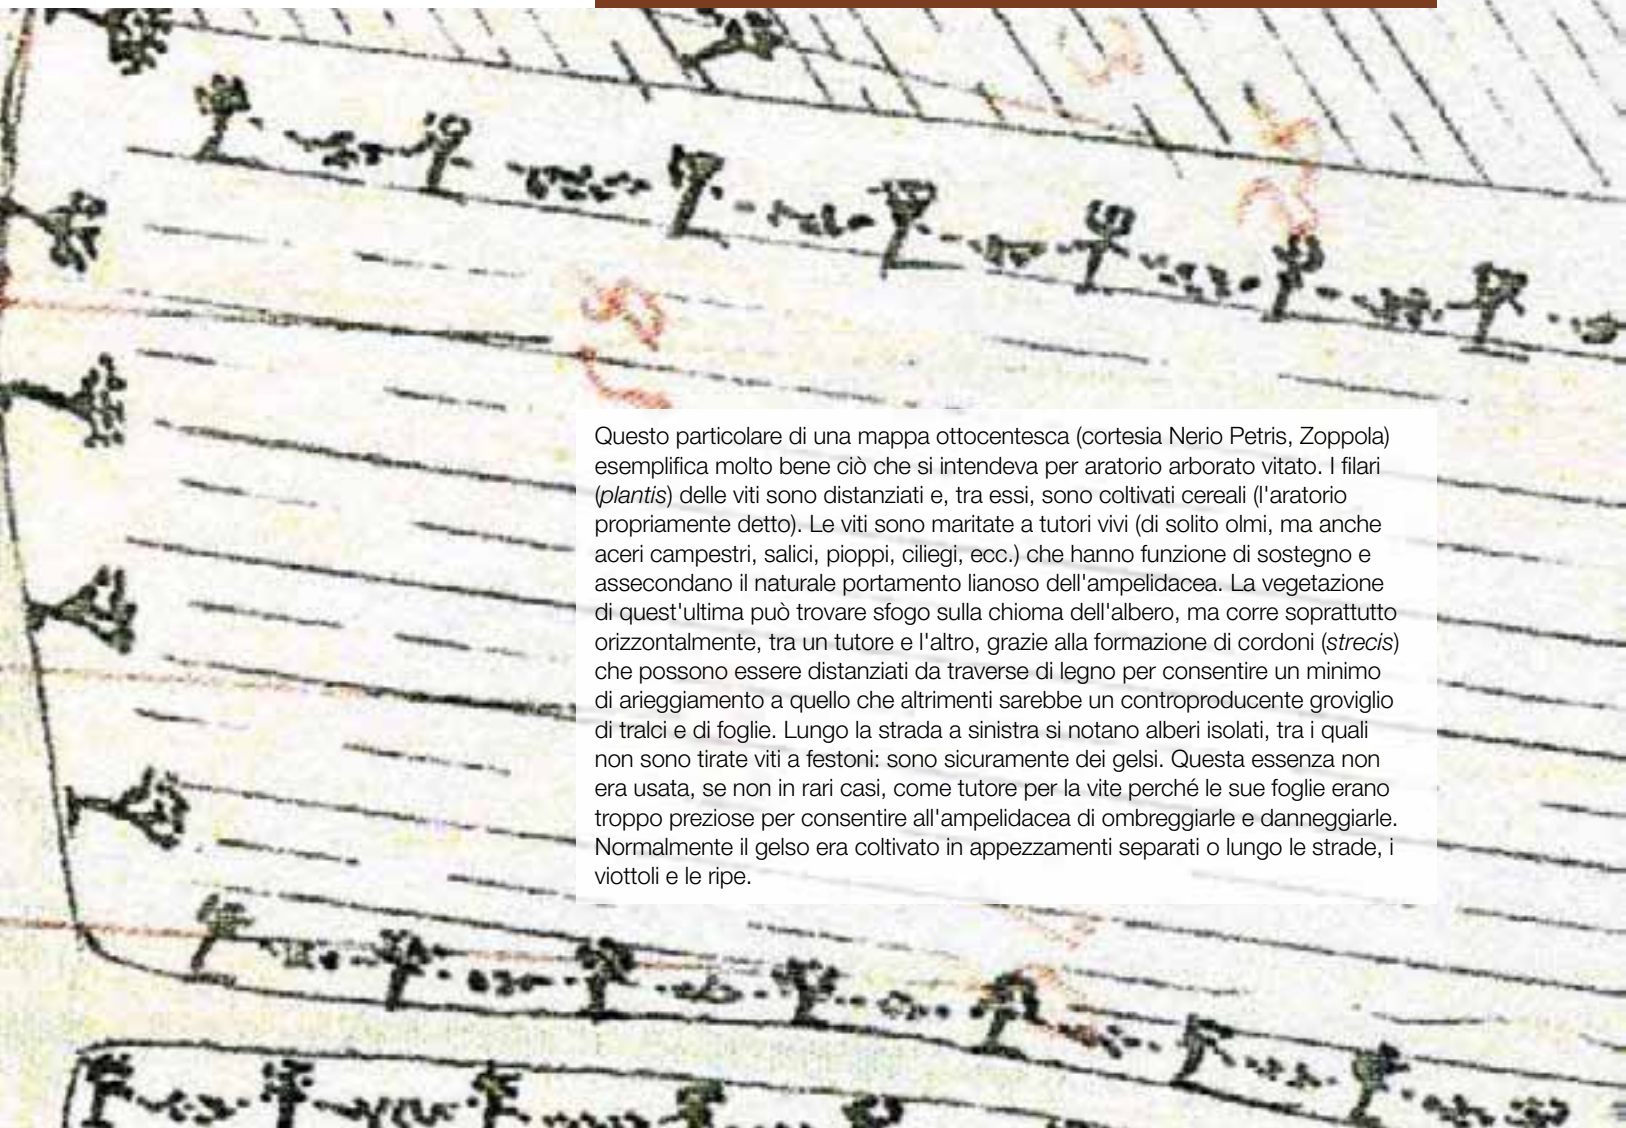 Questo particolare di una mappa ottocentesca (cortesia Nerio Petris, Zoppola)
esemplifica molto bene ciò che si intendeva per aratorio arborato vitato. I filari
(plantis) delle viti sono distanziati e, tra essi, sono coltivati cereali (l'aratorio
propriamente detto). Le viti sono maritate a tutori vivi (di solito olmi, ma anche
aceri campestri, salici, pioppi, ciliegi, ecc.) che hanno funzione di sostegno e
assecondano il naturale portamento lianoso dell'ampelidacea. La vegetazione
di quest'ultima può trovare sfogo sulla chioma dell'albero, ma corre soprattutto
orizzontalmente, tra un tutore e l'altro, grazie alla formazione di cordoni (strecis)
che possono essere distanziati da traverse di legno per consentire un minimo
di arieggiamento a quello che altrimenti sarebbe un controproducente groviglio
di tralci e di foglie. Lungo la strada a sinistra si notano alberi isolati, tra i quali
non sono tirate viti a festoni: sono sicuramente dei gelsi. Questa essenza non
era usata, se non in rari casi, come tutore per la vite perché le sue foglie erano
troppo preziose per consentire all'ampelidacea di ombreggiarle e danneggiarle.
Normalmente il gelso era coltivato in appezzamenti separati o lungo le strade, i
viottoli e le ripe.